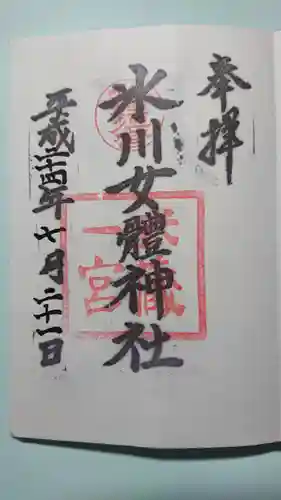 奉拝
氷川女體神社
武蔵
一宮
平成二十四年七月二十一日